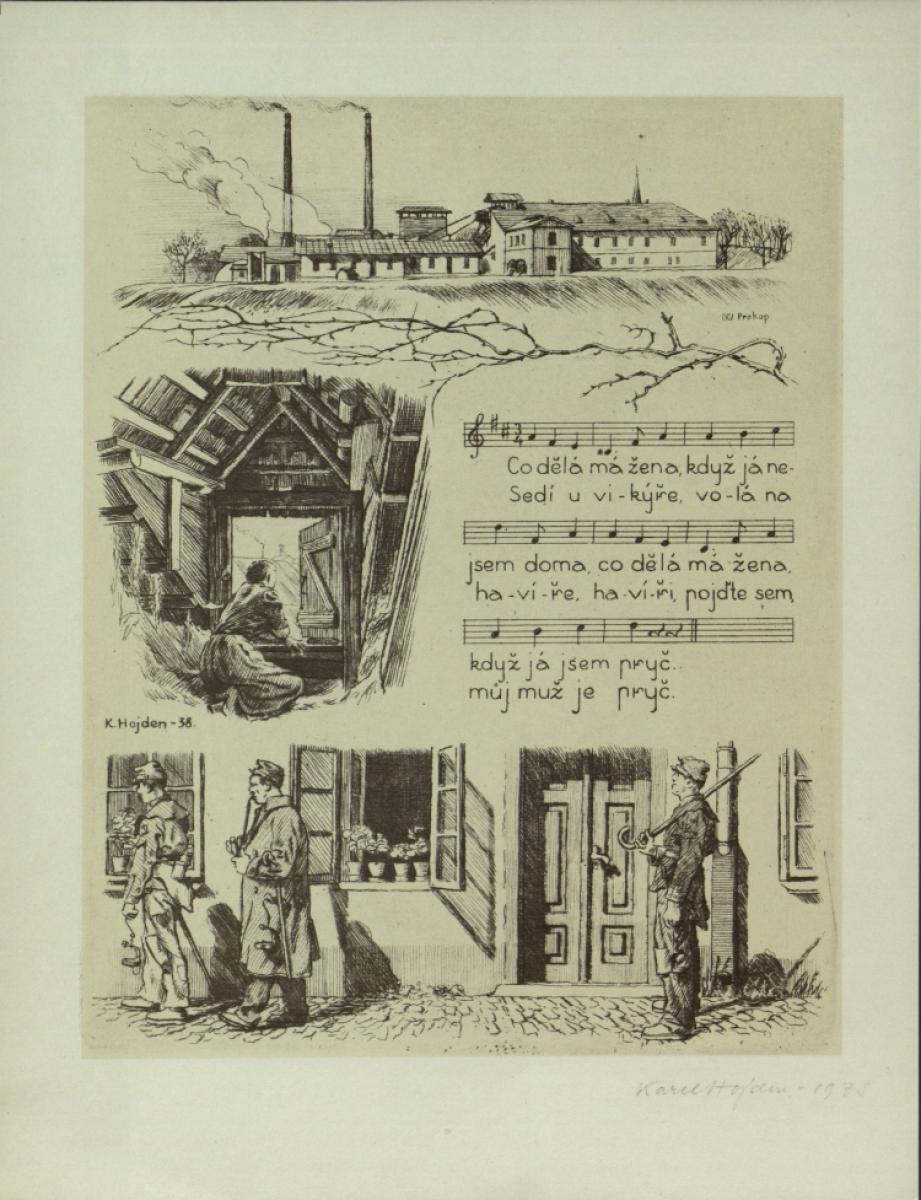 Prokop
Co dělá má žena, když já ne-
Sedí u vi-kýře, vo-lá na
jsem doma, co dělá má žena,
ha-ví-ře, ha-ví-ři, pojďte sem,
když já jsem pryč..
můj muž je pryč.
K. Hojden - 38.
Karel Hojden - 1975